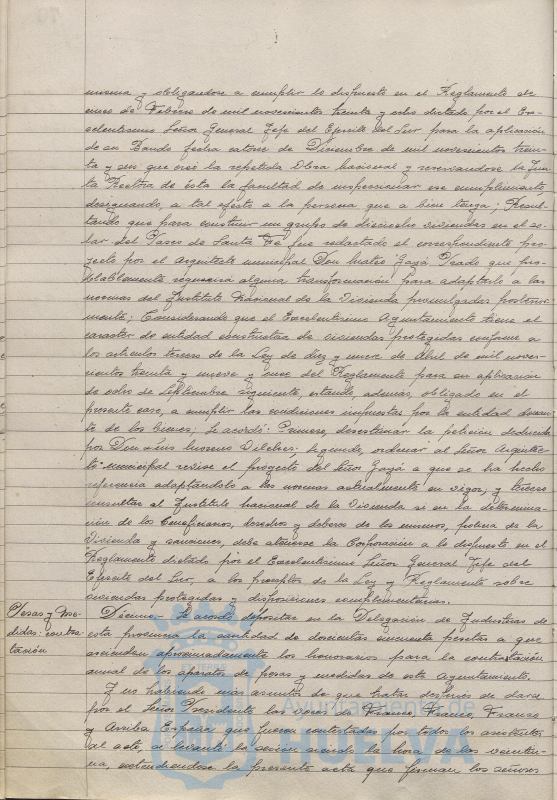 misma y obligandose a cumplir lo dispuesto en el Reglamento de
cinco de Febrero de mil novecientos treinta y ocho dictado por el Ex-
celentisimo Señor General Jefe del Ejercito del Sur para la aplicación
de su Bando fecha catorce de Diciembre de mil novecientos trein-
ta y seis que creó la repetida Obra Nacional y reservandose la Jun-
ta Rectora de ésta la facultad de inspeccionar ese cumplimiento,
designando, a tal efecto a la persona que a bien tenga; Resul-
tando que para construir un grupo de dieciocho viviendas en el so-
lar del Paseo de Santa Fe fue redactado el correspondiente pro-
yecto por el Arquitecto municipal Don Mateo Gayá Prado que pro-
bablemente requerira alguna transformación para adaptarlo a las
normas del Instituto Nacional de la Vivienda promulgadas posterior-
mente; Considerando que el Excelentisimo Ayuntamiento tiene el
caracter de entidad constructora de viviendas protegidas conforme a
los articulos tercero de la Ley de diez y nueve de Abril de mil nove-
cientos treinta y nueve y once del Reglamento para su aplicación
de ocho de Septiembre siguiente, estando, ademas, obligado en el
presente caso, a cumplir las condiciones impuestas por la entidad donan-
te de los bienes; Se acordó: Primero, desestimar la petición deducida
por Don Luis Moreno Vilches; Segundo, ordenar al Señor Arquitec-
to municipal revise el proyecto del Señor Gayá a que se ha hecho
referencia adaptándolo a las normas actualmente en vigor, y tercero
consultar al Instituto Nacional de la Vivienda si en la determina-
ción de los beneficiarios, derechos y deberes de los mismos, policia de la
Vivienda y sanciones, debe atenerse la Corporación a lo dispuesto en el
Reglamento dictado por el Excelentisimo Señor General Jefe del
Ejercito del Sur, o a los preceptos de la Ley y Reglamento sobre
viviendas protegidas y disposiciones complementarias.
Pesas y Me-
didas: contra-
tación
Décimo.- Se acordó depositar en la Delegación de Industrias de
esta provincia la cantidad de doscientas cincuenta pesetas a que
ascienden aproximadamente los honorarios para la contrastación
anual de los aparatos de pesas y medidas de este Ayuntamiento.
Y no habiendo mas asuntos de que tratar despues de darse
por el Señor Presidente las voces de Franco, Franco, Franco
y Arriba España, que fueron contestadas por todos los asistentes
al acto, se levantó la sesión siendo la hora de las veintiu-
na, extendiendose la presente acta que firman los señores
Ayuntamiento de
HUELVA